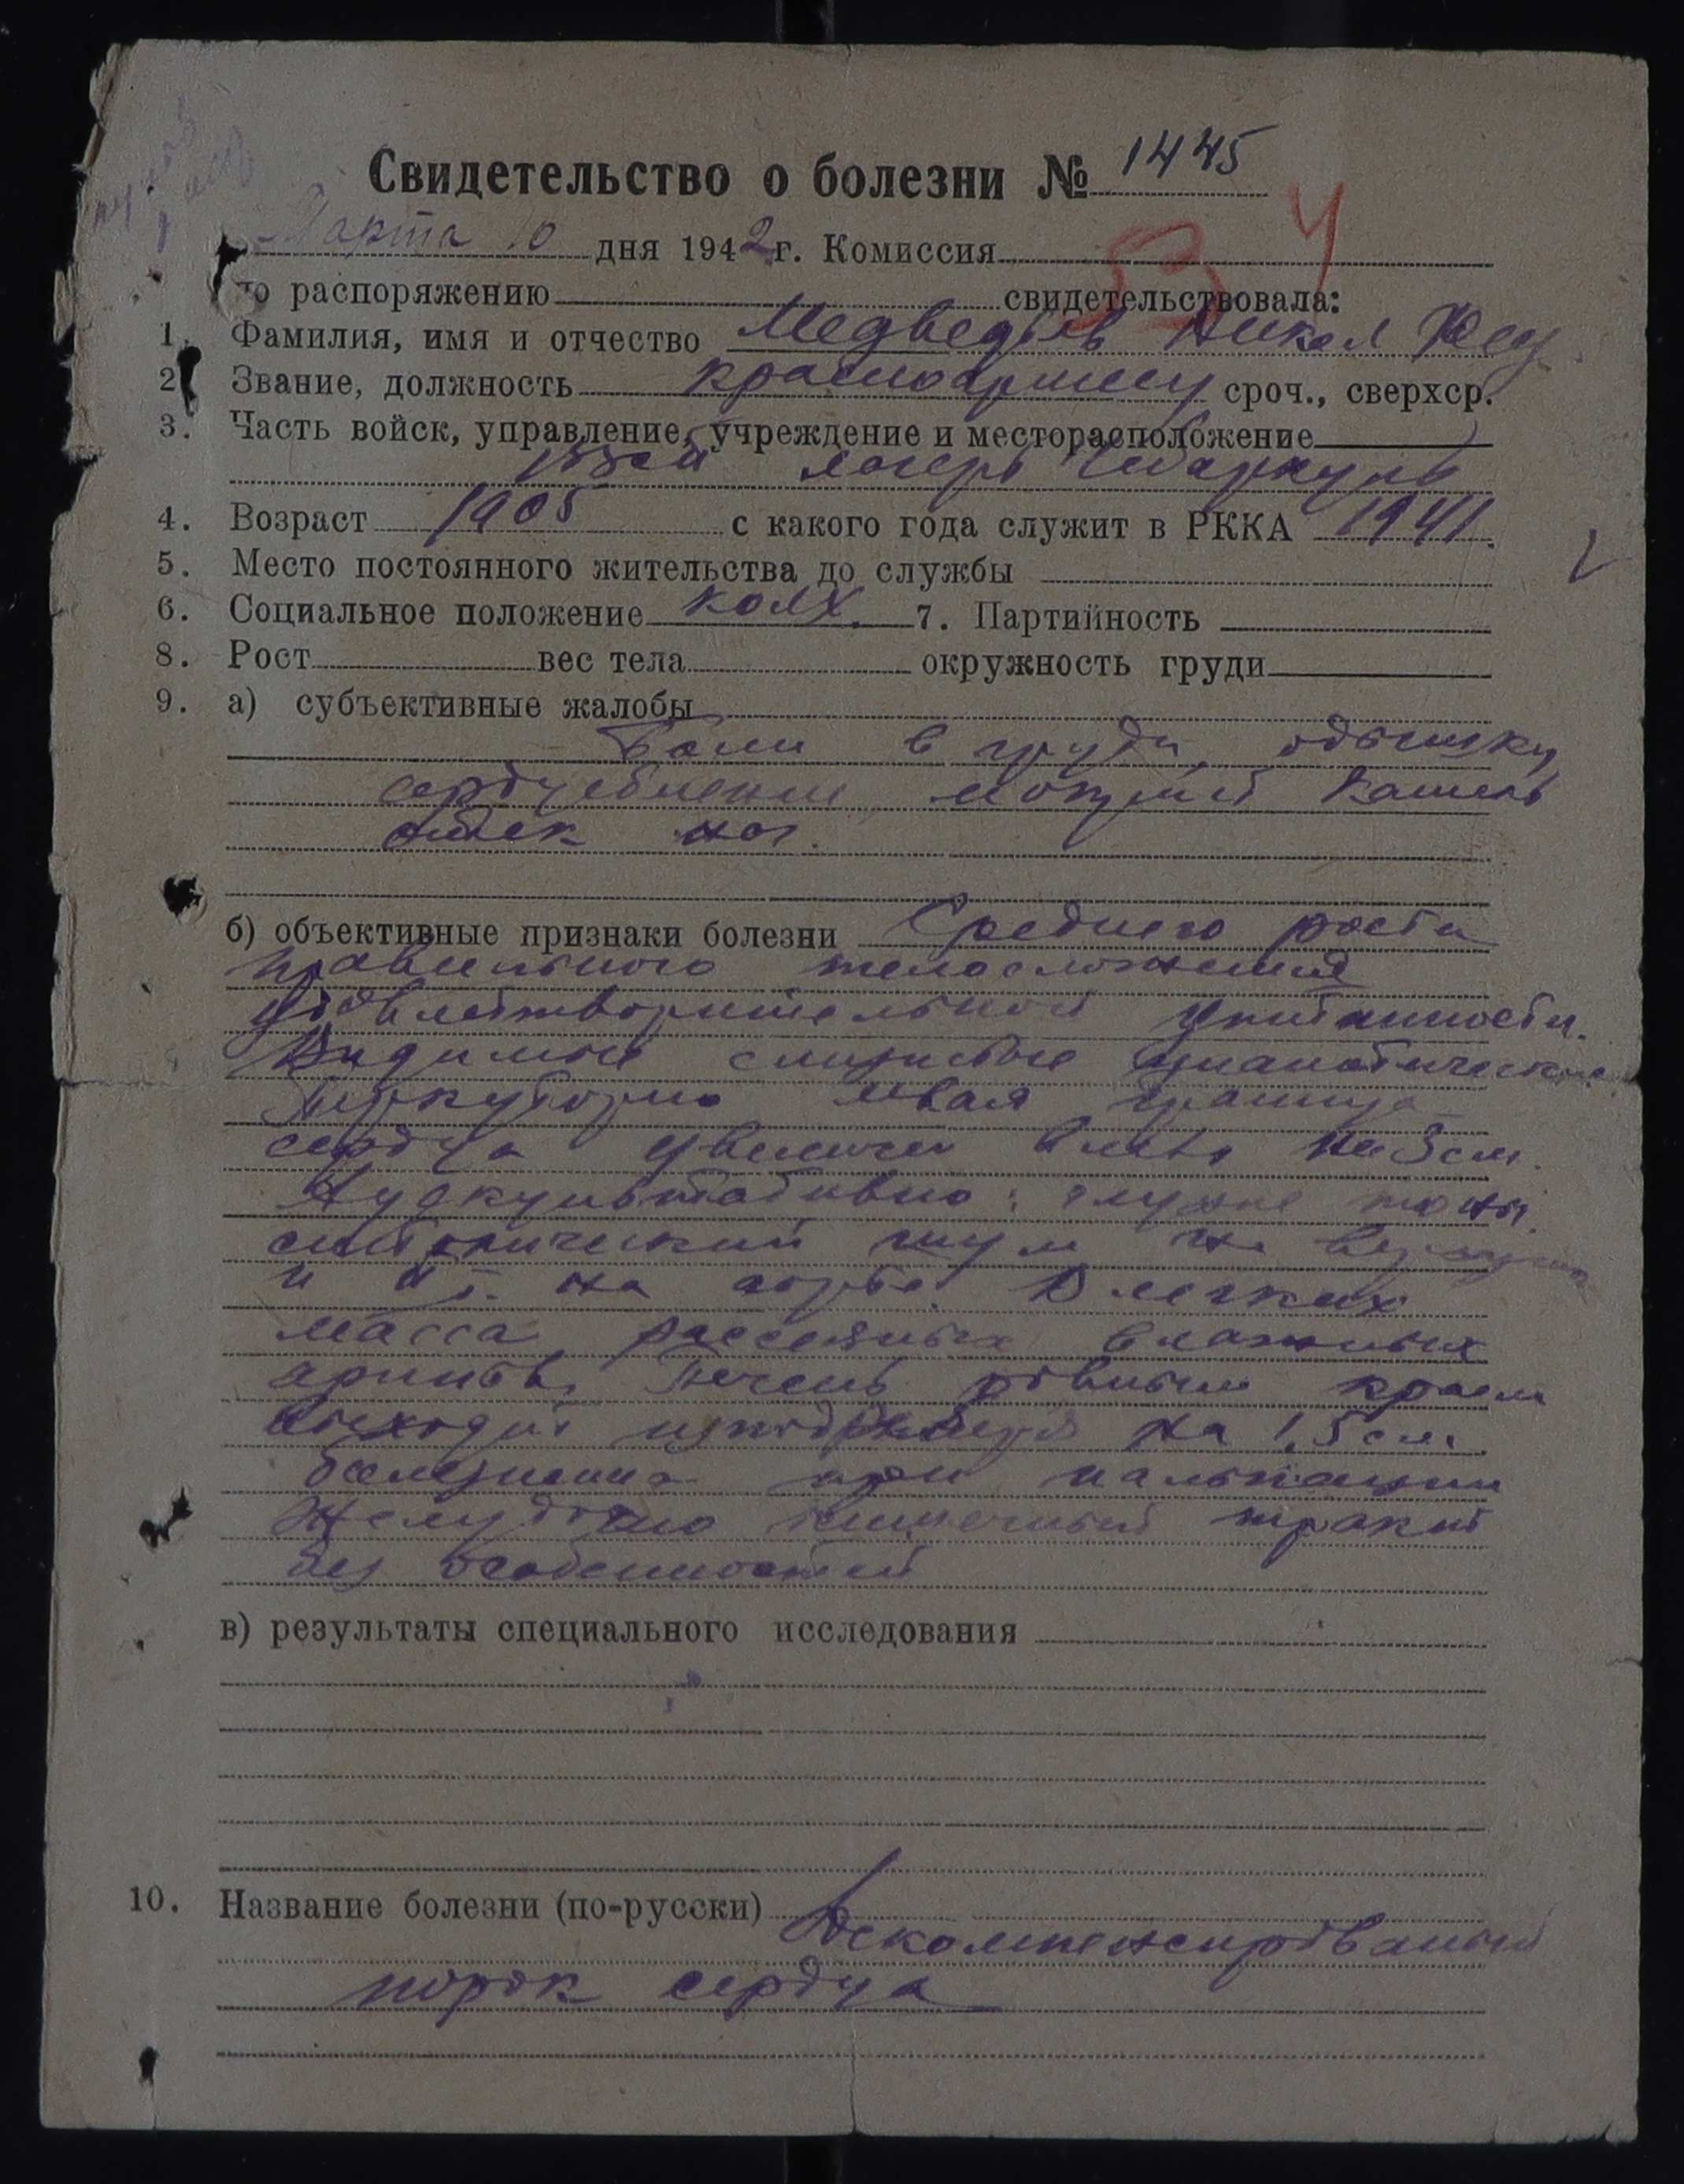 Свидетельство о болезни № 1445
Марта 10 дня 1942 г. Комиссия
по распоряжению свидетельствовала:
1. Фамилия, имя и отчество Медведев Никол
2. Звание, должность красноармеец сроч., сверхср.
3. Часть войск, управление, учреждение и месторасположение
лагерь Чебаркуль
4. Возраст 1905 с какого года служит в РККА 1941.
5. Место постоянного жительства до службы
6. Социальное положение колх. 7. Партийность
8. Рост вес тела окружность груди
9. а) субъективные жалобы
Боли в груди, одышку
сердцебиение, мокрый кашель
отек ног.
б) объективные признаки болезни Среднего роста
правильного телосложения
удовлетворительной упитанности.
Видимые слизистые
Перкуторно левая граница
сердца увеличен влево на 3 см.
глухие тоны,
систолический шум на
и на аорте. В легких
масса рассеяных влажных
Печень ровным краем
выходит на 1,5 см.
болезненна при пальпации
Желудочно кишечный тракт
без особенностей
в) результаты специального исследования
10. Название болезни (по-русски) Декомпенсированый
порок сердца